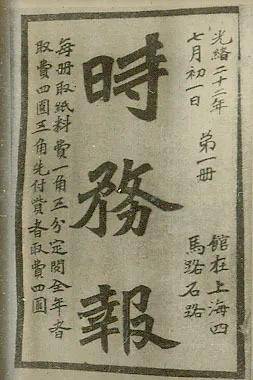 光緒二十二年
七月初一日
第一冊
館在上海四
馬路石路
時務報
每冊取紙料費一角五分定閱全年者
取費四圓三角先付貲者取費四圓